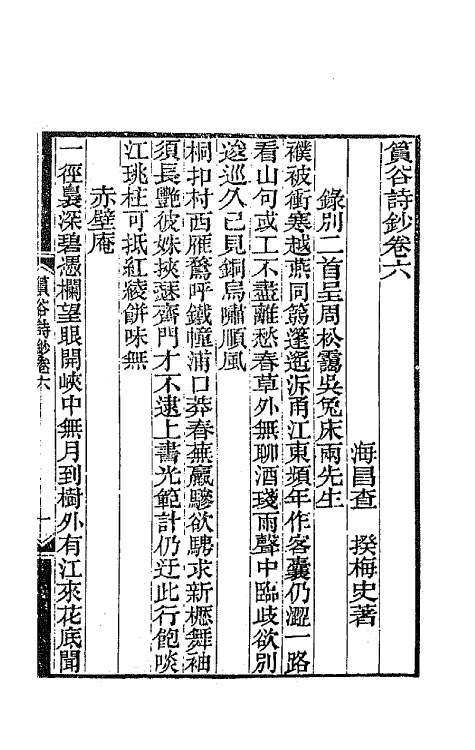 篔谷詩鈔卷六
海昌查　揆梅史著
錄別二首呈周松靄吳兔床兩先生
襆被衝寒越燕同篛篷遙泝甬江東頻年作客囊仍澀一路
看山句或工不盡離愁春草外無聊酒琖雨聲中臨歧欲別
逡巡久已見銅烏嘯順風
桐扣村西雁鶩呼鐵幢浦口莽春蕪羸驂欲騁求新櫪舞袖
須長艷彼姝挾瑟齊門才不逮上書光範計仍迂此行飽啖
江珧柱可抵紅綾餅味無
赤壁庵
一徑裊深碧憑欄望眼開峽中無月到樹外有江來花底聞
篔谷詩鈔卷六
一